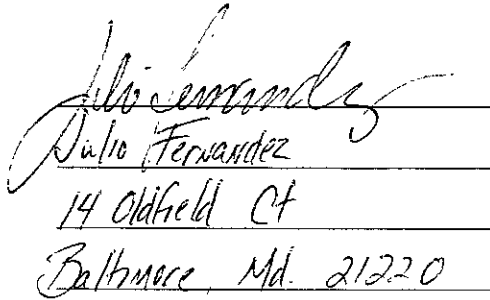 Julio Fernandez
Julio Fernandez
14 Oldfield Ct
Baltimore, Md. 21220